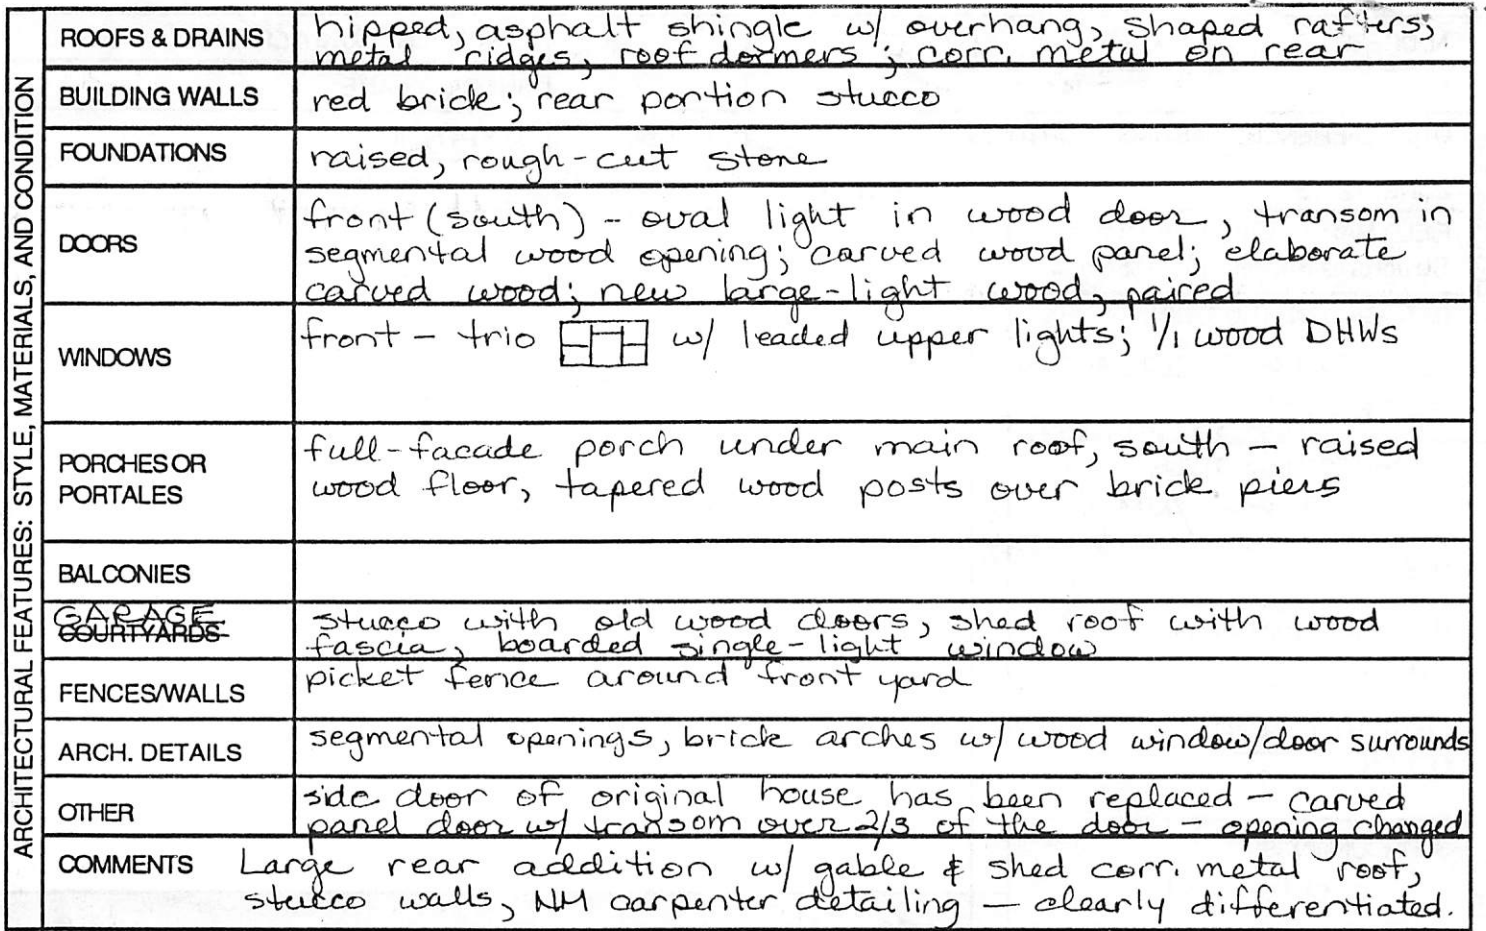 ARCHITECTURAL FEATURES: STYLE, MATERIALS, AND CONDITION
ROOFS & DRAINS
hipped, asphalt shingle w/ overhang, shaped rafters;
metal ridges, roof dormers; corr. metal on rear
BUILDING WALLS
red brick; rear portion stucco
FOUNDATIONS
raised, rough-cut stone
DOORS
front (south) - oval light in wood door, transom in
segmental wood opening; carved wood panel; elaborate
carved wood; new large-light wood, paired
WINDOWS
front - trio w/ leaded upper lights; 1/1 wood DHWs
PORCHES OR
PORTALES
full-facade porch under main roof, south - raised
wood floor, tapered wood posts over brick piers
BALCONIES
GARAGE
COURTYARDS
stucco with old wood doors, shed roof with wood
fascia, boarded single-light window
FENCES/WALLS
picket fence around front yard
ARCH. DETAILS
segmental openings, brick arches w/ wood window/door surrounds
OTHER
side door of original house has been replaced - carved
panel door w/ transom over 2/3 of the door - opening changed
COMMENTS Large rear addition w/ gable & shed corr. metal roof,
stucco walls, NM carpenter detailing - clearly differentiated.